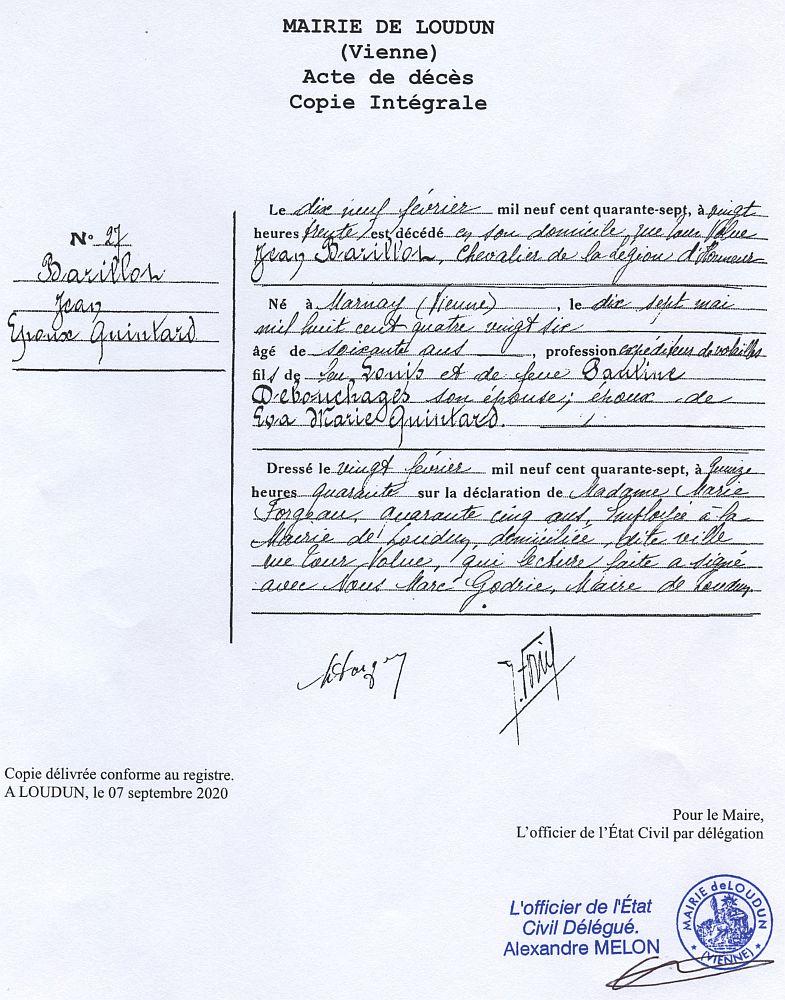 MAIRIE DE LOUDUN
(Vienne)
Acte de décès
Copie Intégrale
N° 27
Barillot
Jean
Epoux Quintard
Le dix neuf février mil neuf cent quarante-sept, à vingt
heures trente est décédé en son domicile, rue Tour Volue
Jean Barillot, Chevalier de la Légion d'Honneur
Né à Marnay (Vienne), le dix sept mai
mil huit cent quatre vingt six
âgé de soixante ans, profession expéditeur de volailles
fils de feu Louis et de feue Pauline
Debouchages son épouse; époux de
Eva Marie Quintard.
Dressé le vingt février mil neuf cent quarante-sept, à quinze
heures quarante sur la déclaration de Madame Marie
Forgeau, quarante cinq ans, employée à la
Mairie de Loudun, domiciliée dite ville
rue Tour Volue, qui lecture faite a signé
avec Nous Marc Godrie, Maire de Loudun.
Copie délivrée conforme au registre.
A LOUDUN, le 07 septembre 2020
Pour le Maire,
L'officier de l'État Civil par délégation
L'officier de l'État
Civil Délégué.
Alexandre MELON
MAIRIE de LOUDUN
(VIENNE)